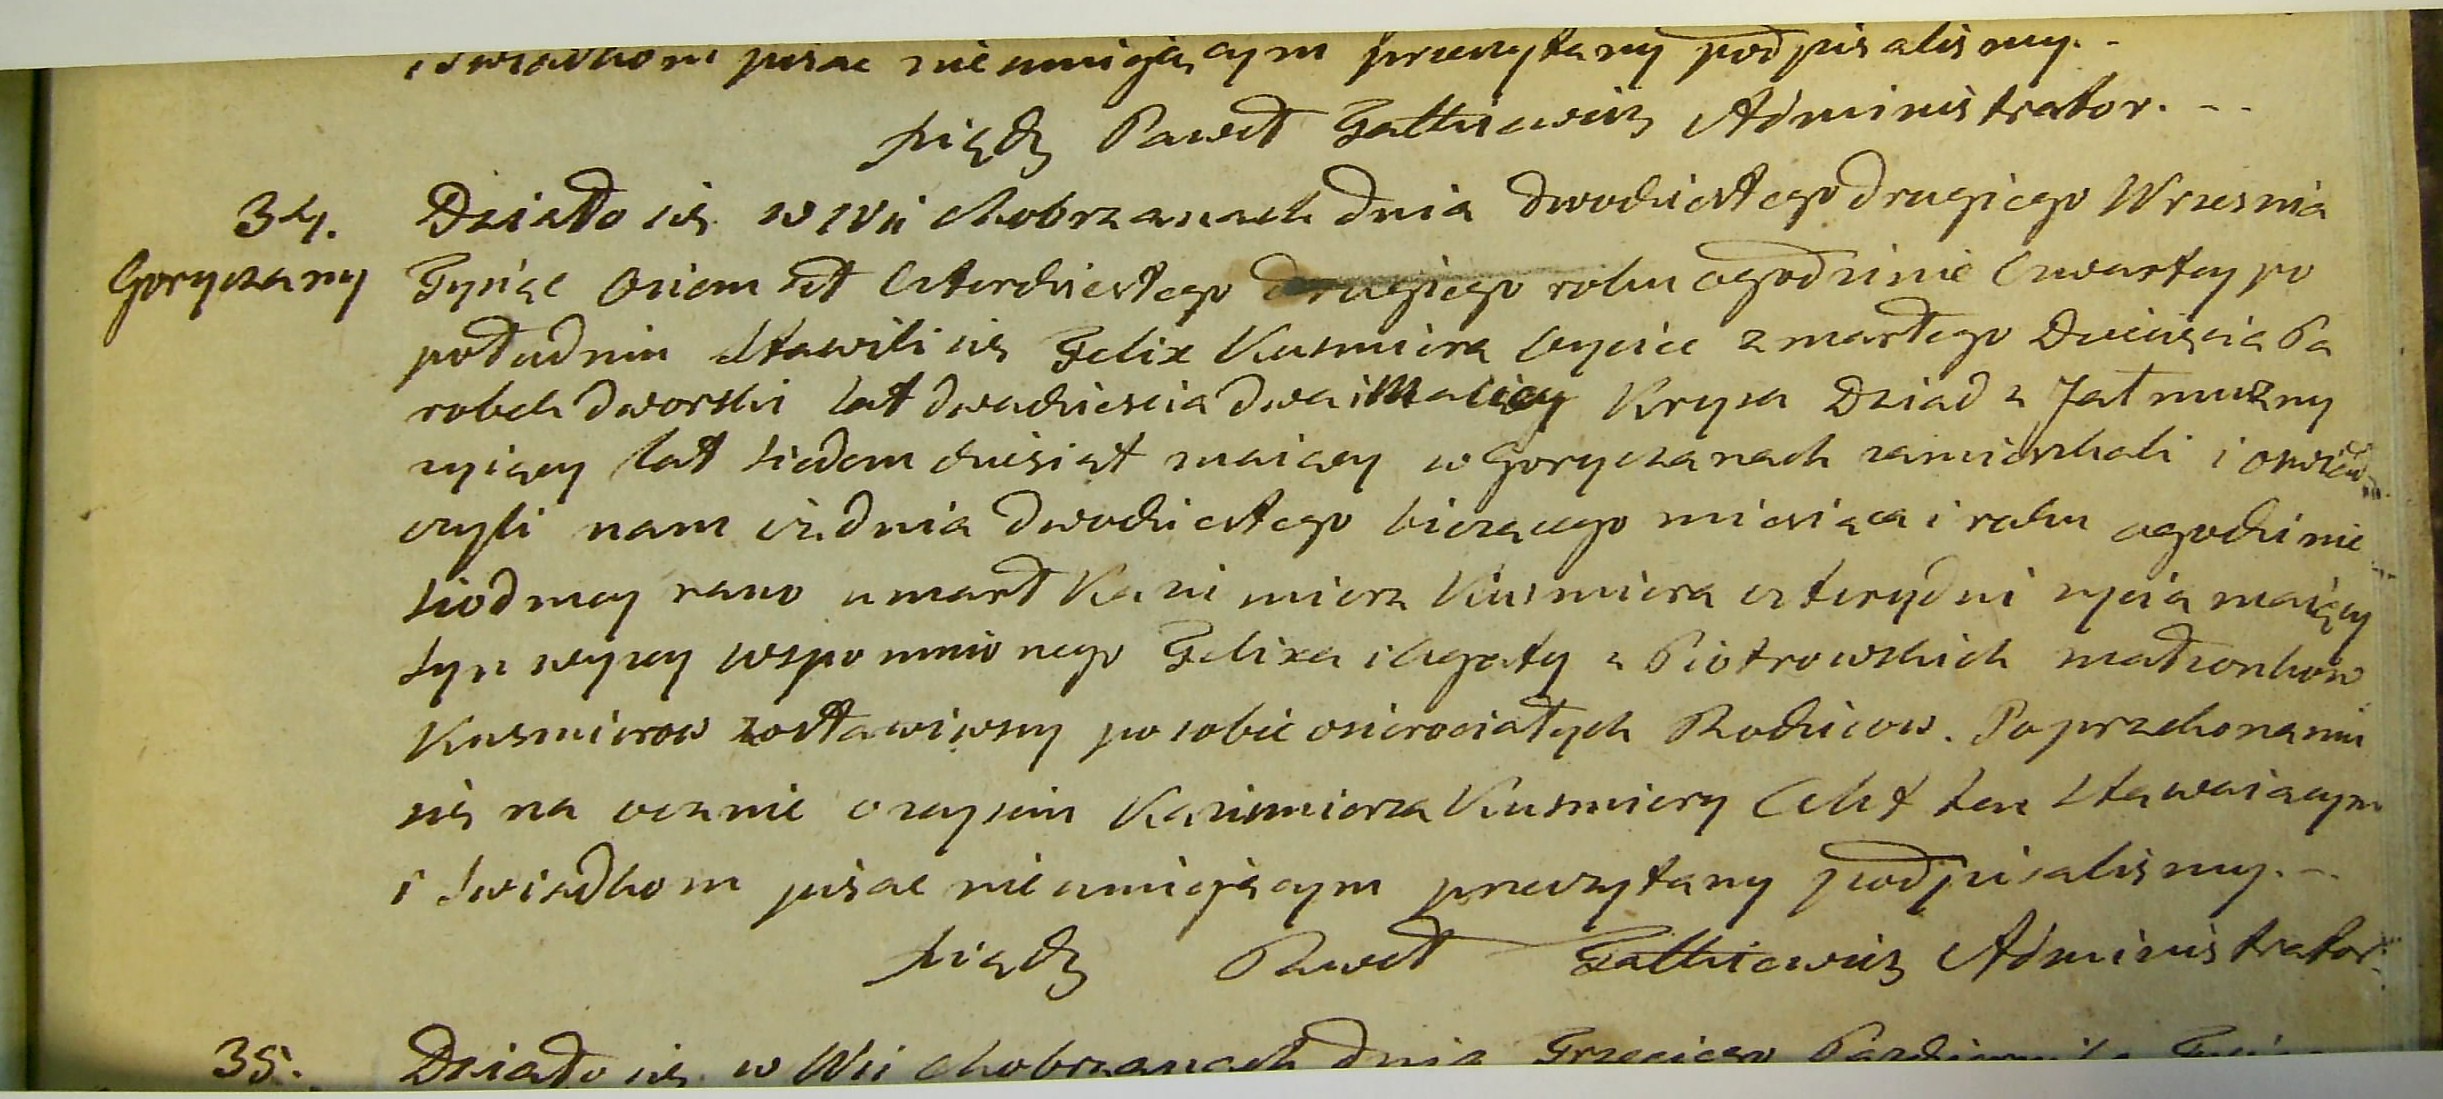 i Swiadkom pisac nieumigącym przeczytany podpisalismy.-
Xiądz Paweł Fałkiewicz Administrator. - -
34. Działo się w Wsi Chobrzanach dnia dwodziestego drugiego Wrzesnia
Goryczany Tysiąc Osiem set Czterdziestego drugiego roku ogodzinie Czwartey po
południu Stawili się Felix Kusmiera Oyciec zmarłego Dziecięcia Pa
robek dworski lat dwadziescia dwa i Maciey Krysa Dziad z Jałmużny
zyiący lat siedemdziesiąt maiący w Goryczanach zamieszkali i oswiad
czyli nam iż dnia dwodziestego bieżącego miesiąca i roku ogodzinie
siodmey rano umarł Kazimierz Kusmiera cztery dni życia maiący
syn wyzey wspomnionego Felixa i Agaty z Piotrowskich małżonkow
Kusmierow zostawiwszy po sobie osierociałych Rodzicow. Po przekonaniu
się na ocznie o zeysciu Kazimierza Kusmiery Akt ten Stawaiącym
i Swiadkom pisac nieumigącym przeczytany podpisalismy.-
Xiądz Paweł Fałkiewicz Administrator.
35. Działo się w Wsi Chobrzanach dnia Trzeciego Pazdziernika